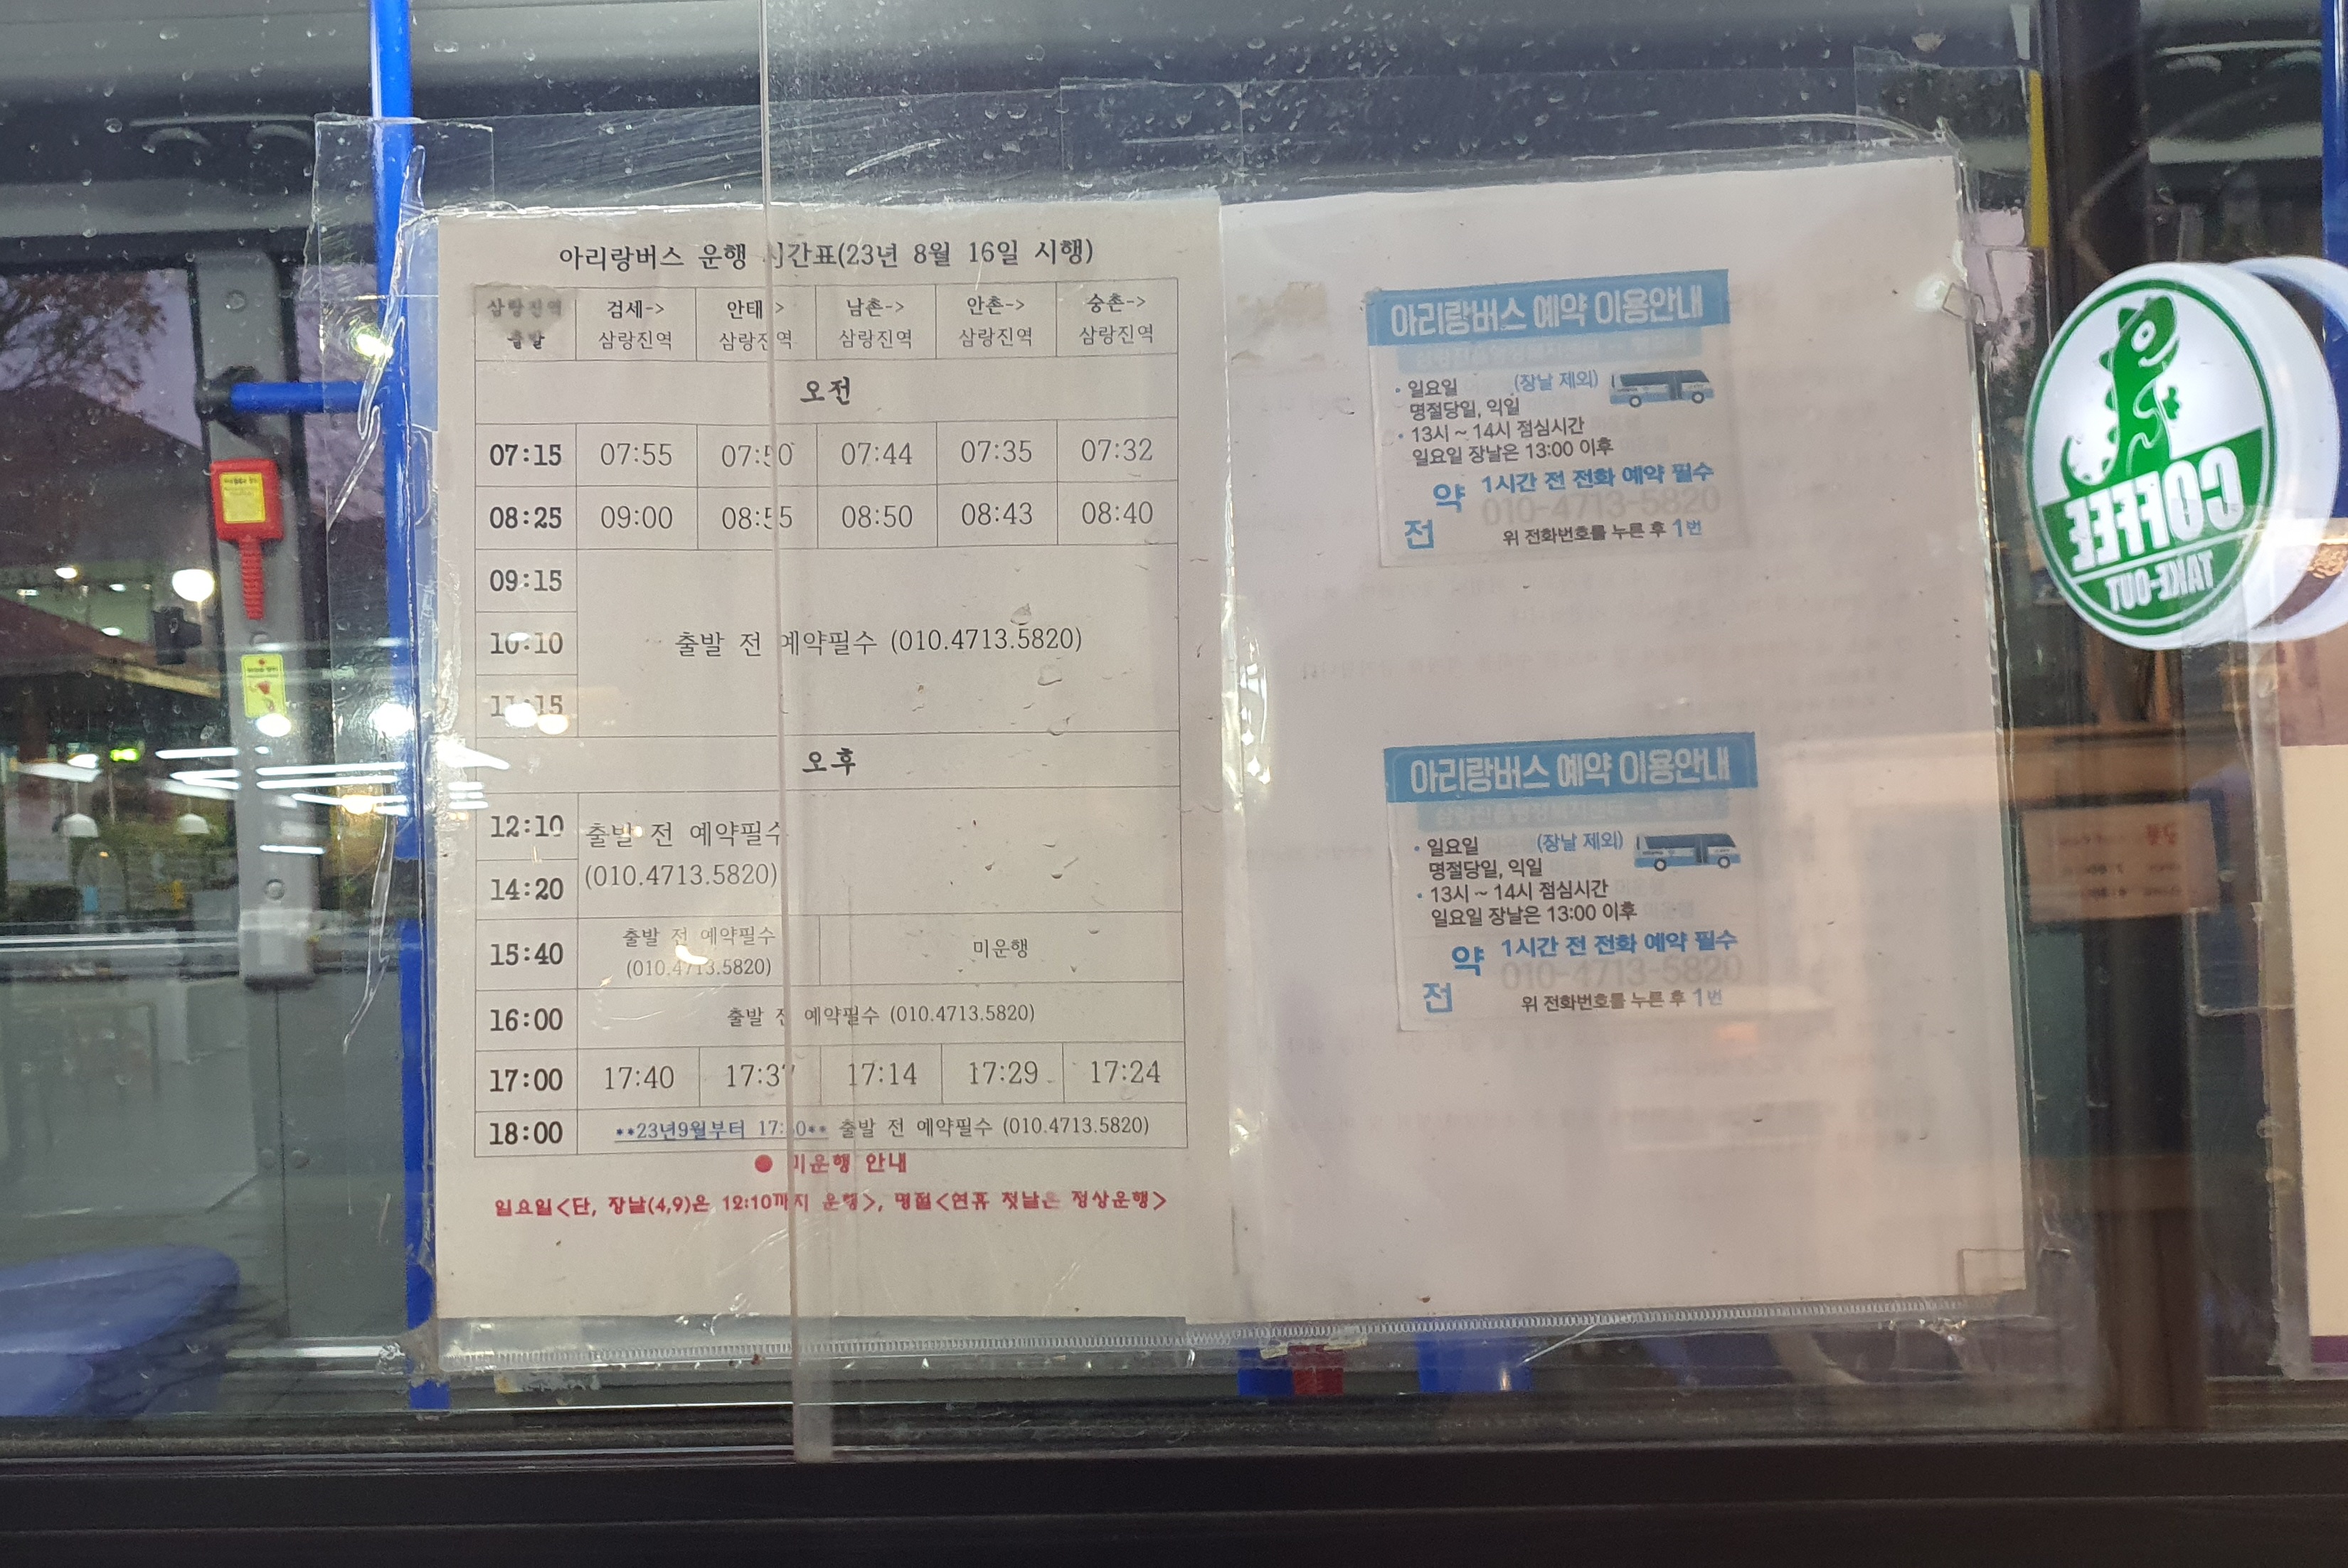 아리랑버스 운행 시간표(23년 8월 16일 시행)
삼랑진역 출발 검세-> 삼랑진역 안태-> 삼랑진역 남촌-> 삼랑진역 안촌-> 삼랑진역 숭촌-> 삼랑진역
오전
07:15 07:55 07:50 07:44 07:35 07:32
08:25 09:00 08:55 08:50 08:43 08:40
09:15
10:10 출발 전 예약필수 (010.4713.5820)
11:15
오후
12:10 출발 전 예약필수
14:20 (010.4713.5820)
15:40 출발 전 예약필수 (010.4713.5820) 미운행
16:00 출발 전 예약필수 (010.4713.5820)
17:00 17:40 17:37 17:14 17:29 17:24
18:00 **23년9월부터 출발 전 예약필수 (010.4713.5820)
● 미운행 안내
일요일<단, 장날(4,9)은 12:10까지 운행>, 명절<연휴 첫날은 정상운행>
아리랑버스 예약 이용안내
• 일요일 (장날 제외)
명절당일, 익일
• 13시 ~ 14시 점심시간
일요일 장날은 13:00 이후
약 1시간 전 전화 예약 필수
010-4713-5820
전 위 전화번호를 누른 후 1번
아리랑버스 예약 이용안내
• 일요일 (장날 제외)
명절당일, 익일
• 13시 ~ 14시 점심시간
일요일 장날은 13:00 이후
약 1시간 전 전화 예약 필수
010-4713-5820
전 위 전화번호를 누른 후 1번
COFFEE
TAKE-OUT